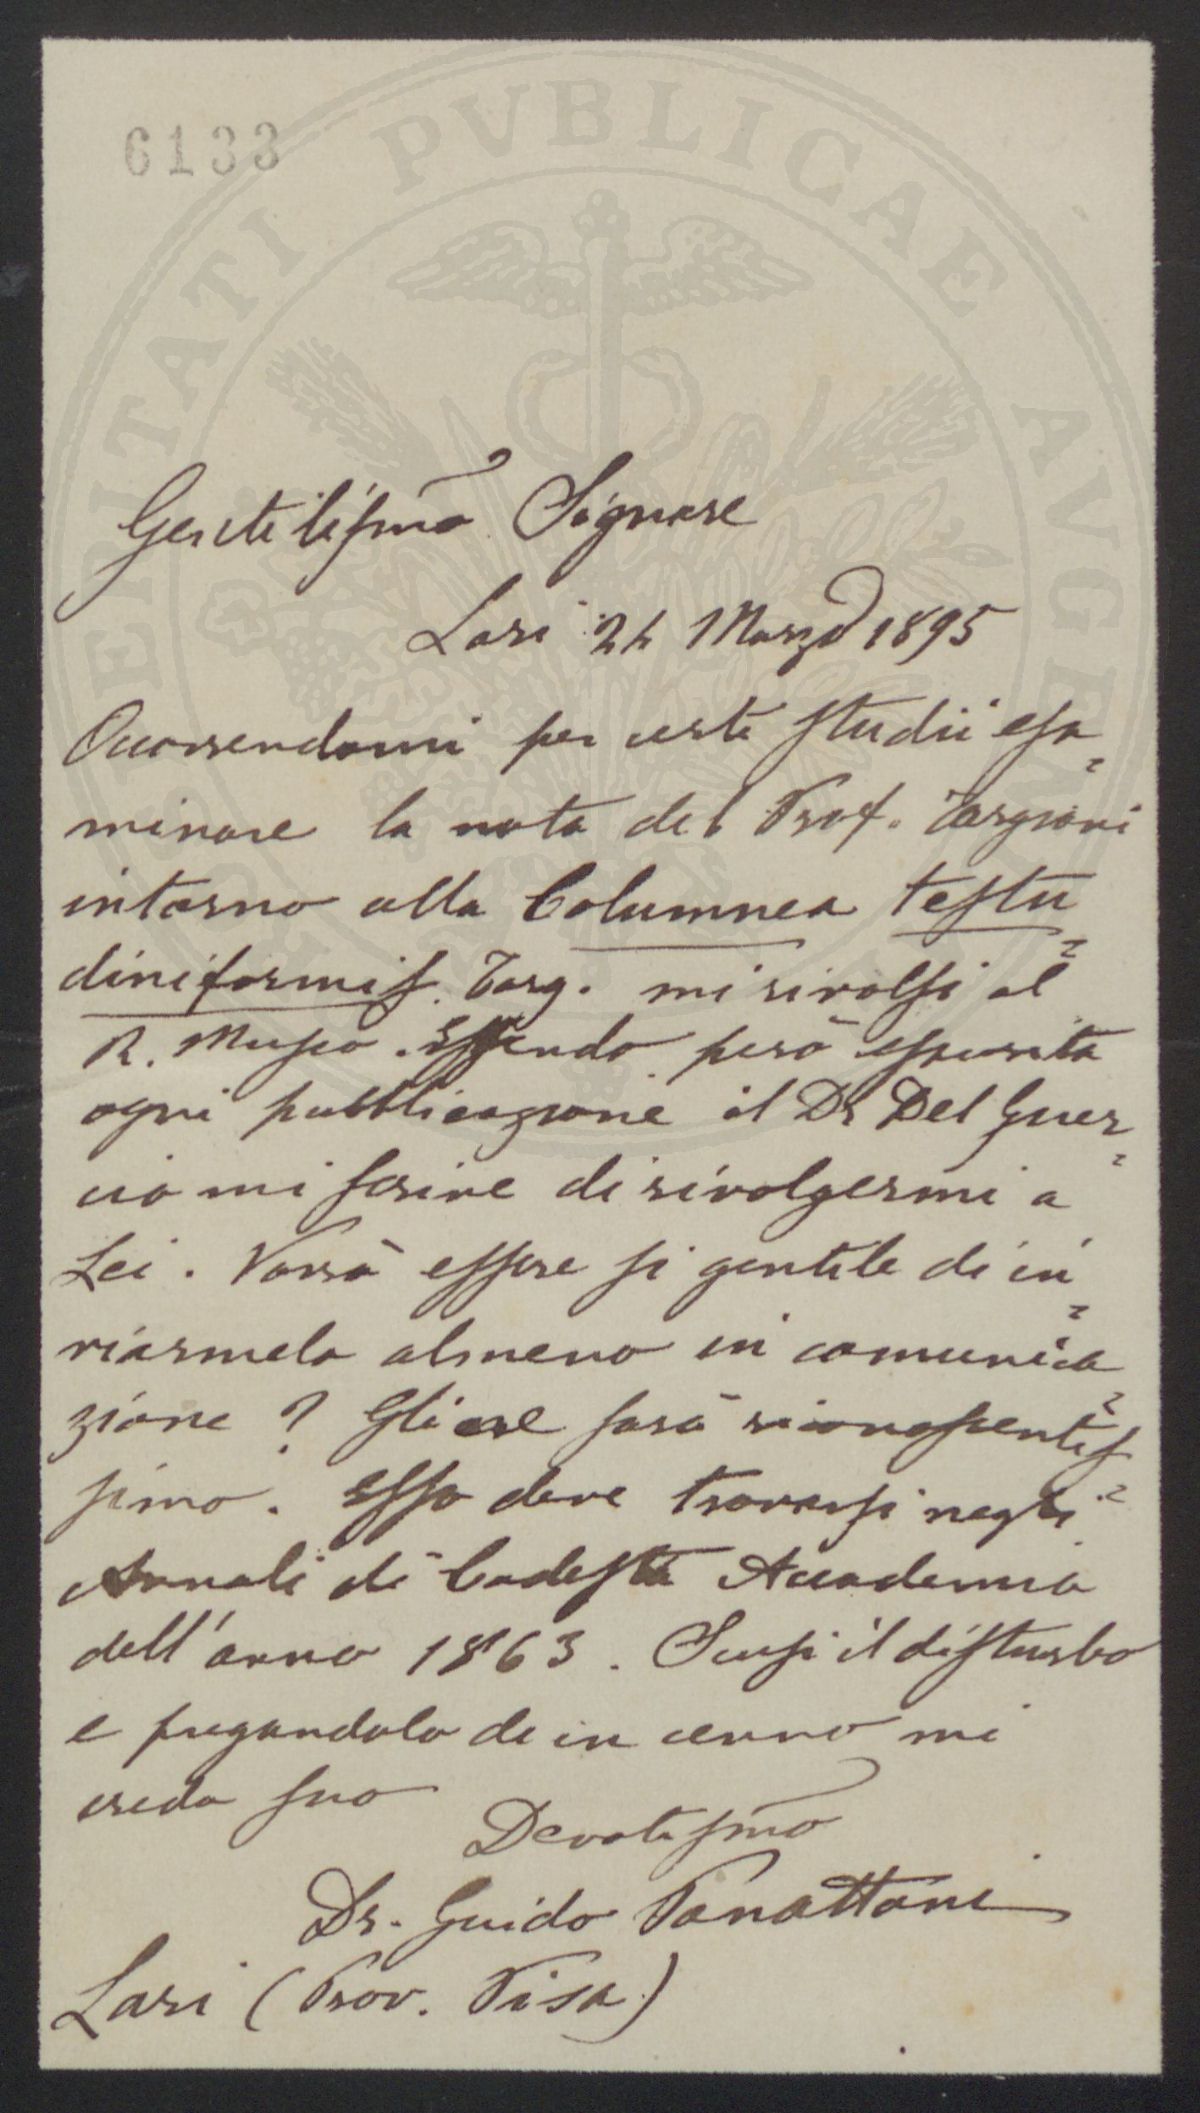 6133
PROSPERITATI PVBLICAE AVGENDAE
Gentilissmo Signore
Lari 24 Marzo 1895
Occorrendomi per certi studii esa=
minare la nota del Prof. Targioni
intorno alla Columnea testu=
diniformis. Targ. mi rivolsi al
R. Museo. Essendo però esaurita
ogni pubblicazione il Dr Del Guer=
cio mi scrive di rivolgermi a
Lei. Vorrà essere si gentile di in=
viarmela almeno in comunica=
zione? Gliene sarò riconoscentis=
simo. Essa deve trovarsi negli
Annali di Codesta Accademia
dell'anno 1863. Scusi il disturbo
e pregandola di un cenno mi
creda suo
Devotissmo
Dr. Guido Panattoni
Lari (Prov. Pisa)